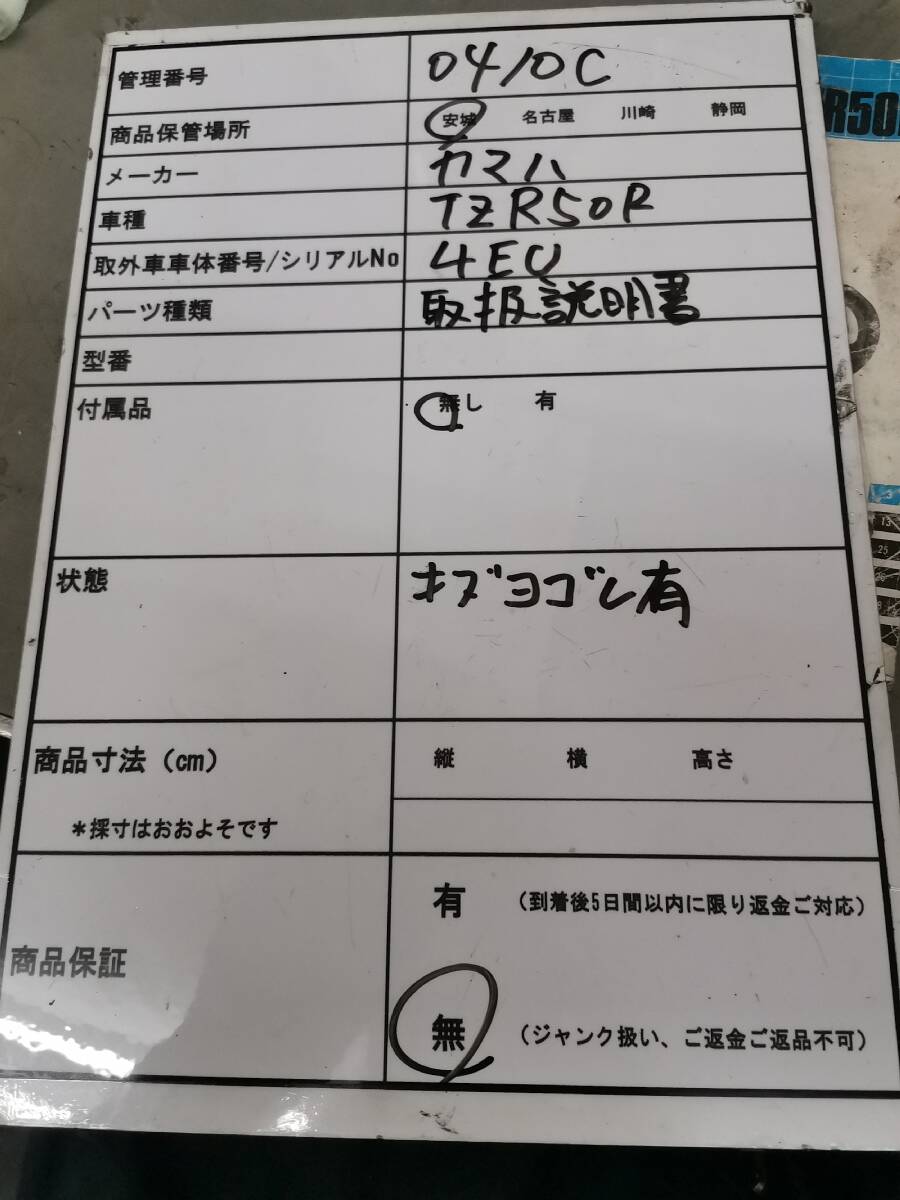 管理番号 0410C
商品保管場所 安城 名古屋 川崎 静岡
メーカー ヤマハ
車種 TZR50R
取外車車体番号/シリアルNo 4EU
パーツ種類 取扱説明書
型番
付属品 無し 有
状態 キズヨゴレ有
商品寸法(cm) 縦 横 高さ
*採寸はおおよそです
商品保証
有 (到着後5日間以内に限り返金ご対応)
無 (ジャンク扱い、ご返金ご返品不可)
R50
3
13
25